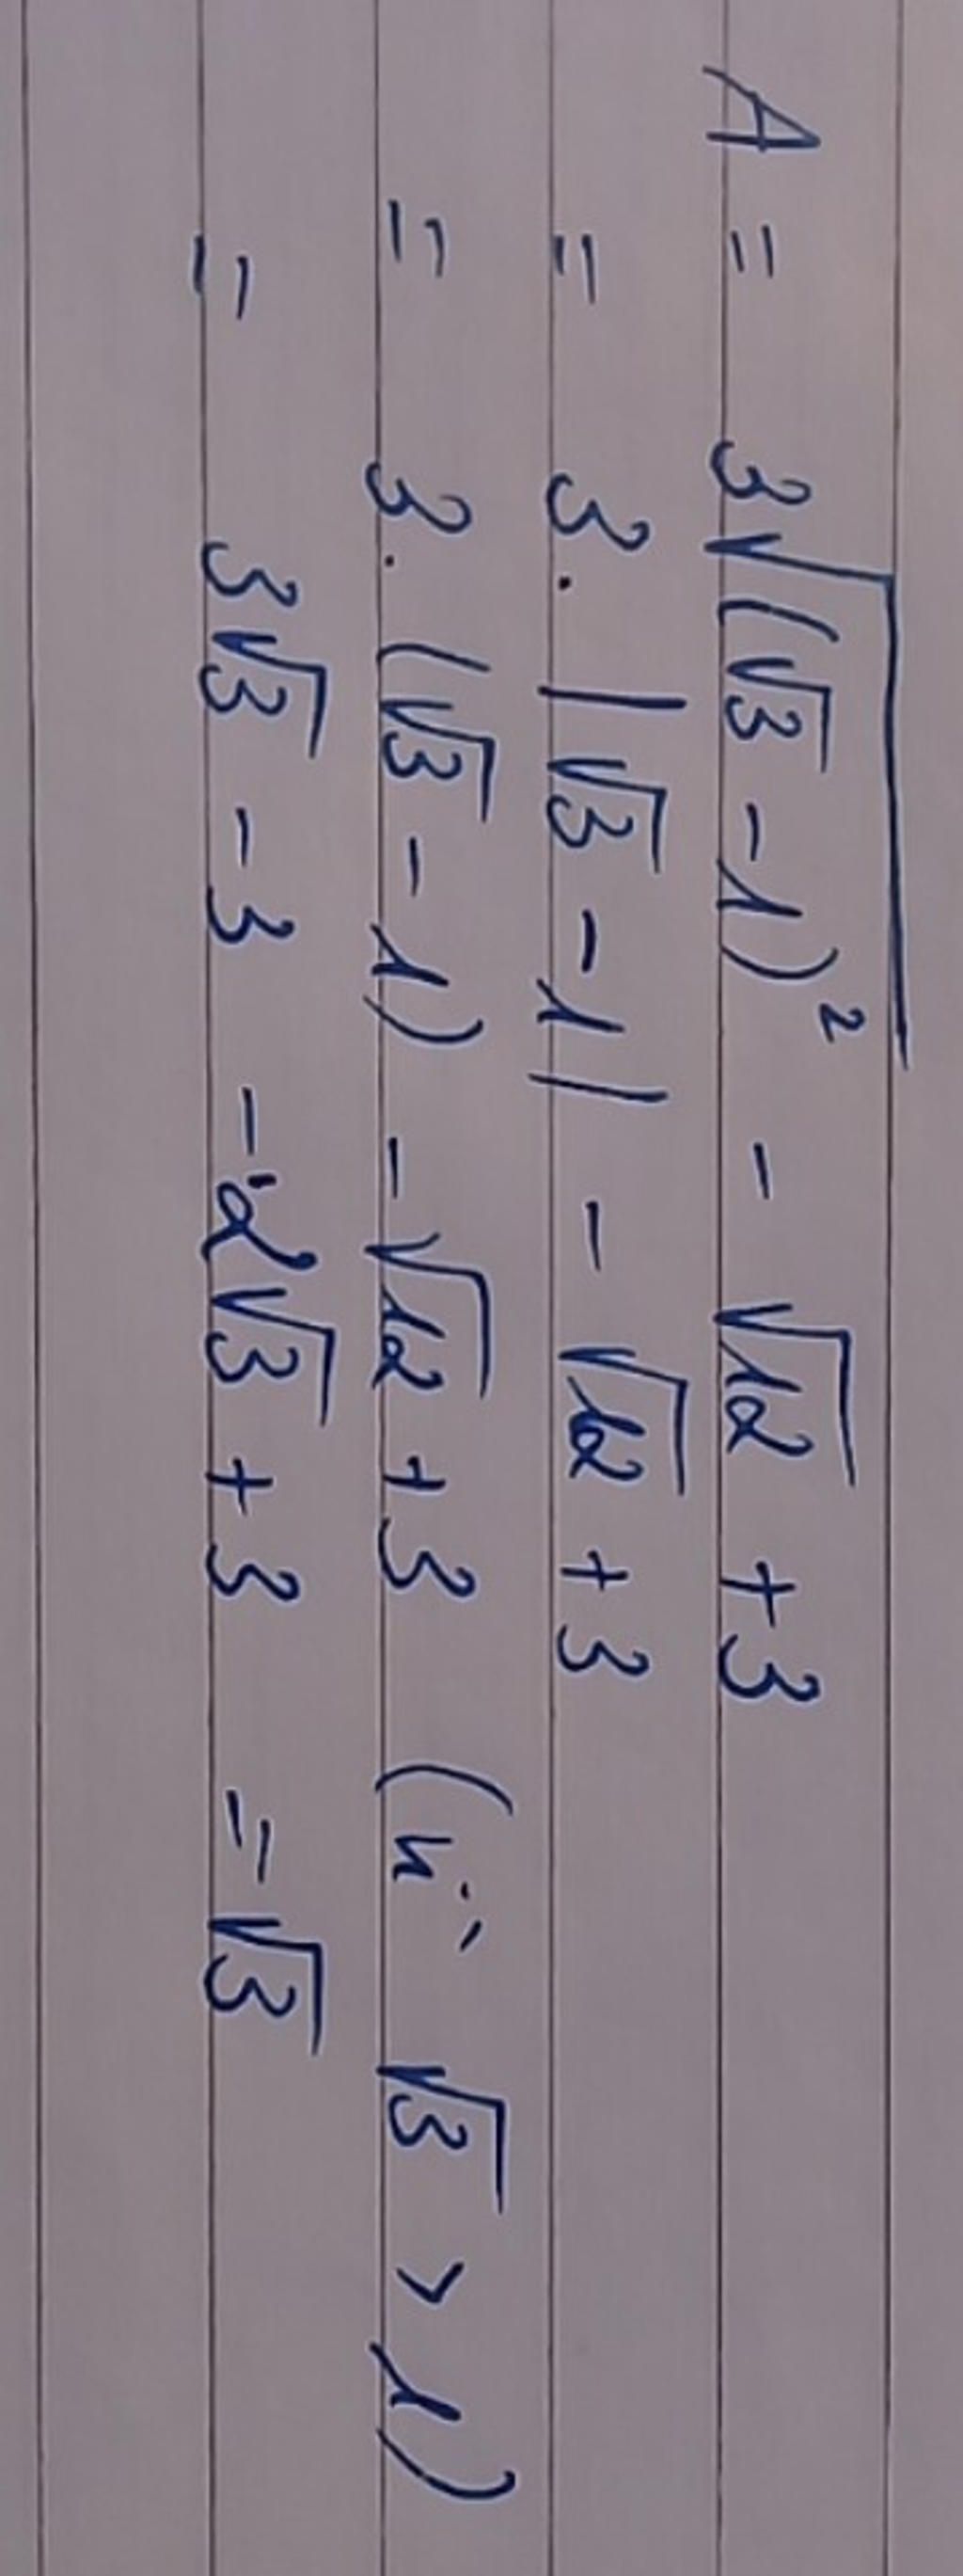 A = 3√(√3 - 1)² - √12 + 3
= 3 . |√3 - 1| - √12 + 3
= 3 . (√3 - 1) - √12 + 3 (vì √3 > 1)
= 3√3 - 3 - 2√3 + 3 = √3